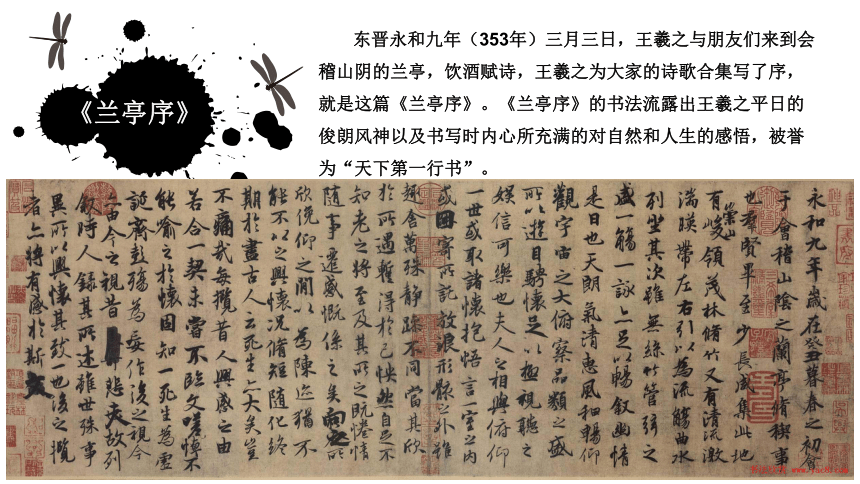 《兰亭序》
东晋永和九年（353年）三月三日，王羲之与朋友们来到会
稽山阴的兰亭，饮酒赋诗，王羲之为大家的诗歌合集写了序，
就是这篇《兰亭序》。《兰亭序》的书法流露出王羲之平日的
俊朗风神以及书写时内心所充满的对自然和人生的感悟，被誉
为“天下第一行书”。
永和九年歲在癸丑暮春之初會
于會稽山陰之蘭亭脩稧事
也羣賢畢至少長咸集此地
有崇山峻領茂林脩竹又有清流激
湍暎帶左右引以為流觴曲水
列坐其次雖無絲竹管弦之
盛一觴一詠亦足以暢敘幽情
是日也天朗氣清惠風和暢仰
觀宇宙之大俯察品類之盛
所以遊目騁懷足以極視聽之
娛信可樂也夫人之相與俯仰
一世或取諸懷抱悟言一室之內
或因寄所託放浪形骸之外雖
趣舍萬殊靜躁不同當其欣
於所遇暫得於己怏然自足不
知老之將至及其所之既惓情
隨事遷感慨係之矣向之所
欣俛仰之閒以為陳迹猶不
能不以之興懷況脩短隨化終
期於盡古人云死生亦大矣豈
不痛哉每攬昔人興感之由
若合一契未嘗不臨文嗟悼不
能喻之於懷固知一死生為虛
誕齊彭殤為妄作後之視今
亦由今之視昔悲夫故列
敘時人錄其所述雖世殊事
異所以興懷其致一也後之攬
者亦將有感於斯文